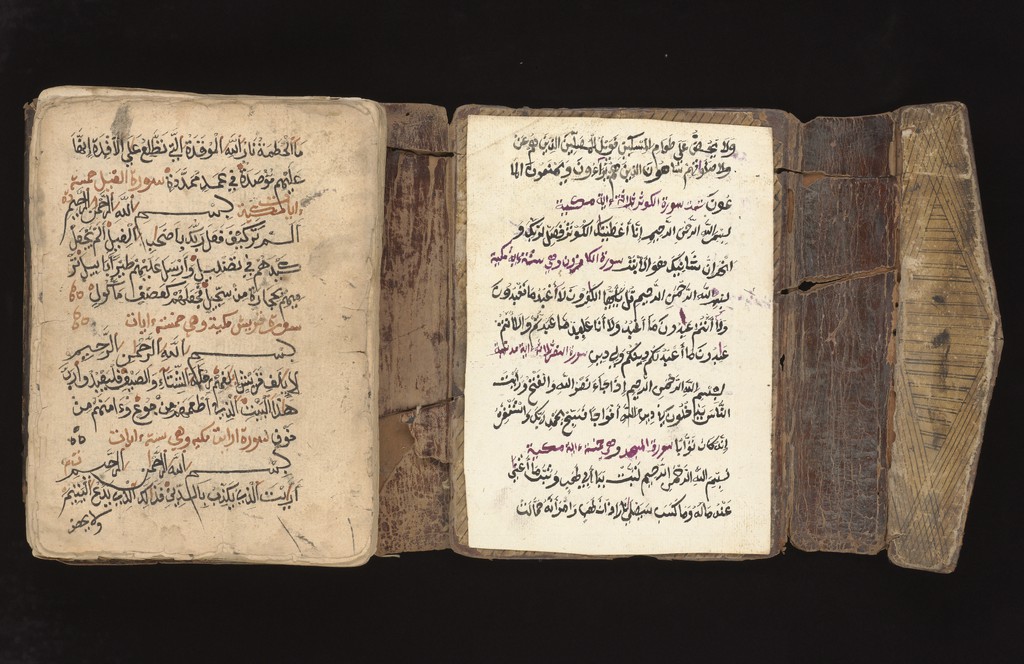 ما الحطمة نار الله الموقدة التي تطلع على الأفدة إنها
عليهم موصدة في عمد ممددة سورة الفيل خمسة
ءايات مكية بسم الله الرحمن الرحيم
ألم تر كيف فعل ربك بأصحاب الفيل ألم يجعل
كيدهم في تضليل وأرسل عليهم طيرا أبابيل تر
ميهم بحجارة من سجيل فجعلهم كعصف مأكول
سورة قريش مكية وهي خمسة ءايات
بسم الله الرحمن الرحيم
لإيلف قريش إلفهم رحلة الشتاء والصيف فليعبدوا رب
هذا البيت الذي أطعمهم من جوع وءامنهم من
خوف سورة أرايت مكية وهي ستة ءايات
بسم الله الرحمن الرحيم
أرايت الذي يكذب بالدين فذالك الذي يدع اليتيم
ولا يحض
ولا يحض على طعام المسكين فويل للمصلين الذين هم عن
صلاتهم ساهون الذين هم يراءون ويمنعون الما
عون سورة الكوثر ثلاثة ءاية مكية
بسم الله الرحمن الرحيم إنا أعطينك الكوثر فصل لربك و
انحر إن شانيك هو الأبتر سورة الكافرون وهي ستة ءاية مكية
بسم الله الرحمن الرحيم قل يأيها الكفرون لا أعبد ما تعبدون
ولا أنتم عبدون ما أعبد ولا أنا عابد ما عبدتم ولا أنتم
عبدون ما أعبد لكم دينكم ولي دين سورة النصر ءاية مدنية
بسم الله الرحمن الرحيم إذا جاء نصر الله والفتح ورأيت
الناس يدخلون في دين الله أفواجا فسبح بحمد ربك واستغفره
إنه كان توابا سورة المسد وهي خمسة ءاية مكية
بسم الله الرحمن الرحيم تبت يدا أبي لهب وتب ما أغنى
عنه ماله وما كسب سيصلى نارا ذات لهب وامرأته حمالت